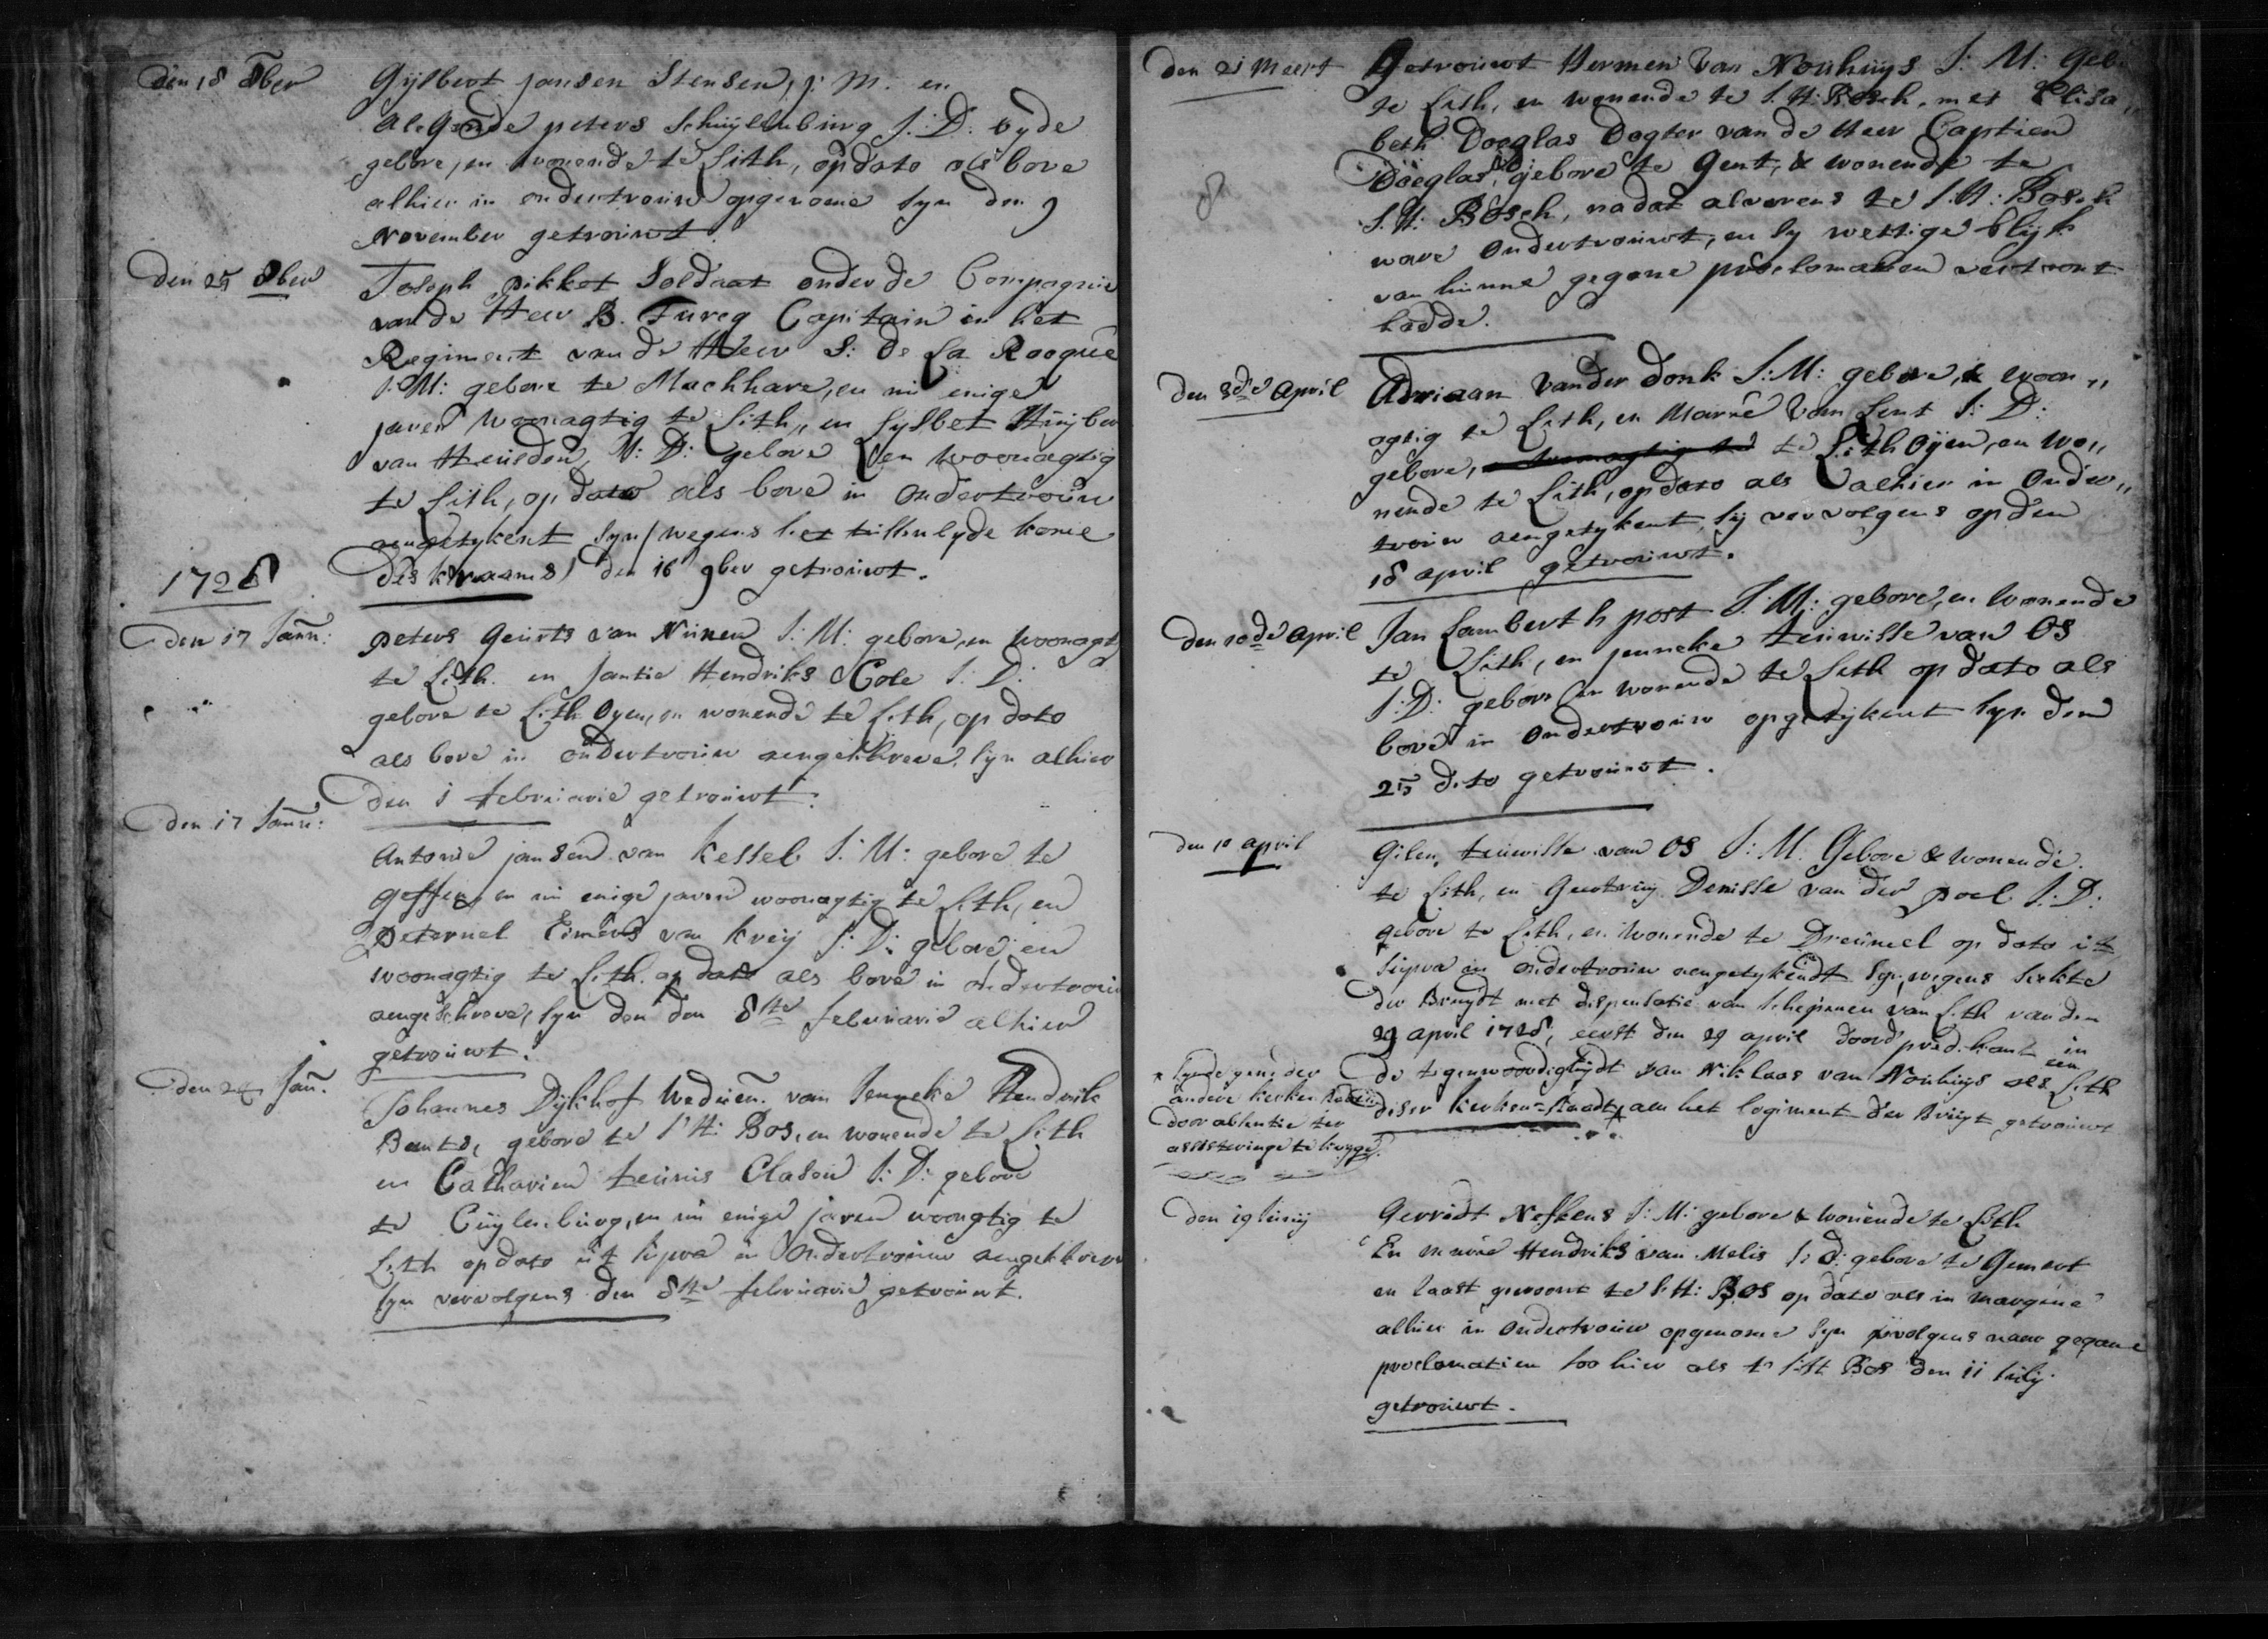 den 18 8ber
Gijlbert jansen Stensen, j: M. en
Alegonde peters Schuÿlenburg J: D: byde
gebore, en wonende te Lith, op dato als bove
alhier in ondertrouw opgenome syn den 9
November getrouwt.
den 25 8ber
Joseph pikket Soldaat onder de Compagnie
van de Heer B. Tureg Capitain in het
Regiment van de Heer S: De La Rooque
J: M: gebore te Mackhare, en nu enige
jaren woonagtig te Lith, en Lysbet Huÿber
van Heusden, J: D: gebore en woonagtig
te Lith, op dato als bove in ondertrouw
aengetykent syn (wegens het tussenlyde kome
des kraams) den 16 9ber getrouwt.
1728
den 17 Jann:
peters Geurts van Nunen J: M: gebore, en woonagt
te Lith. en Jantie Hendriks Cole J: D:
gebore te Lith Oyen, en wonende te Lith, op dato
als bove in ondertrouw aengeschreve, syn alhier
den 1 februarie getrouwt.
den 17 Jann:
Antonie jansen van Kessel J: M: gebore te
Geffen, en nu enige jaren woonagtig te Lith, en
Peternel Eimers van kreij J: D: gebore en
woonagtig te Lith. op dato als bove in ondertrouw
aengeschreve, syn den den 8ste februarie alhier
getrouwt.
den 24 Jan.
Johannes Dykhof Weduen. van Jenneke Hendrik
Bents, gebore te s' H: Bos, en wonende te Lith
en Catharien teunis Clasen J: D: gebore
te Cuÿlenburg, en nu enige jaren woongtig te
Lith op dato ut supra in Ondertrouw aengeschreve
syn vervolgens den 8ste februarie getrouwt.
den 21 Meert
Getrouwt Hermen Van Nouhuÿs J: M: Geb
te Lith, en wonende te S. H: Bosch, met Elisa„
beth Doeglas Dogter van de Heer Captien
Doeglas, gebore te Gent, & wonende te
S. H: Bosch, nadat alvorens te S. H: Bosch
ware Ondertrouwt, en sy wettige blyk
van hunne gegane proclomatien vertoont
hadde.
den 3de April
Adriaan Vander Donk J: M: gebore, & woon„
agtig te Lith, en Marie Van Lent J: D:
gebore, te Lith Oÿen, en wo„
nende te Lith, op dato als alhier in Onder„
trouw aengetykent, sy vervolgens op den
18 april getrouwt.
den 10de April
Jan Lamberth post J: M: gebore, en wonende
te Lith, en jenneke teunisse van OS
J: D: gebore en wonende te Lith op dato als
bove in Ondertrouw opgetykent syn den
25 dito getrouwt.
den 10 april
Gilen teunisse van OS J: M: Gebore & wonende
te Lith, en Geertruij Denisse van der poel J: D:
gebore te Lith, en wonende te Dreumel op dato ut
supra in ondertrouw aengetykendt syn, wegens siekte
der Bruydt met dispensatie van Schepenen van Lith van den
29 april 1728, eerst den 29 april door pred. kant in
de tegenwoordigheydt van Niklaas van Nouhuÿs als een Lith
deser kerken-Raedt, aen het logiment der Bruyt getrouwt
* synde gene der
andere kerken Raden
door absentie ter
assisteringe te kryge.
den 19 Junij
Gerridt Neskens J: M: gebore & wonende te Lith
En Marie Hendriks van Melis J: D: gebore te Gemert
en laast gewoont te s H: BOS op dato als in margine
alhier in Ondertrouw opgenome syn vvolgens naer gegane
proclomatien soo hier als te s H Bos den 11 Julij
getrouwt.